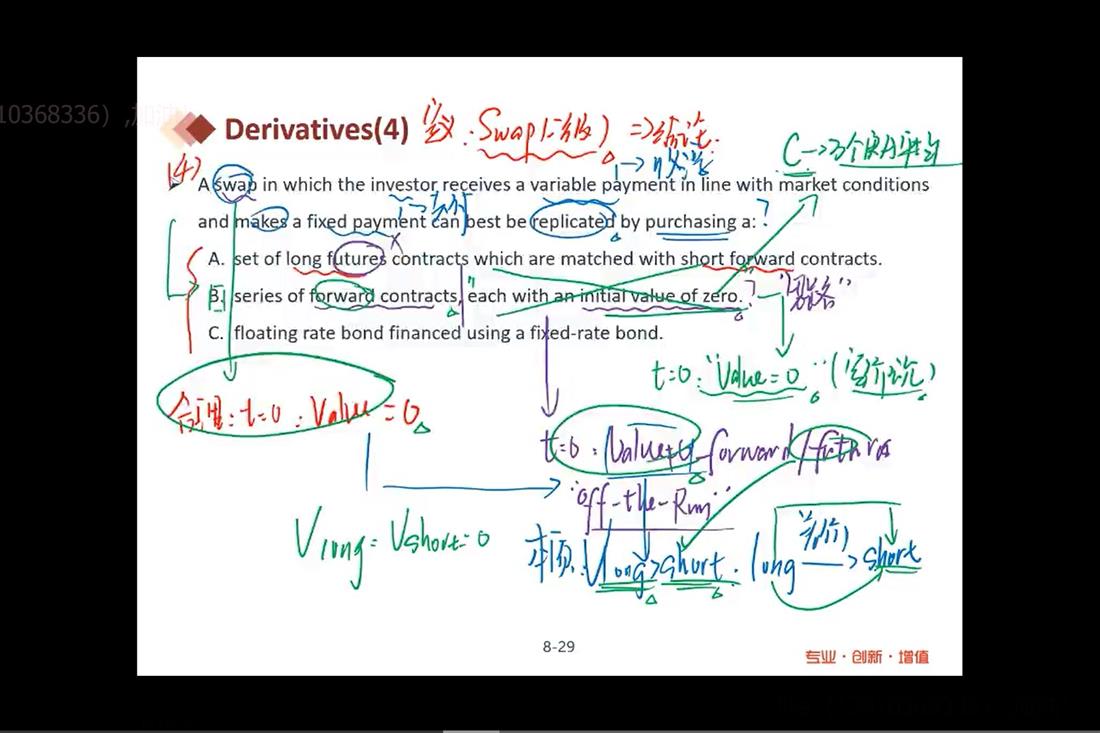 10368336）,加油
Derivatives(4) Swap(二级) ⇒
(4)
C→
A swap in which the investor receives a variable payment in line with market conditions
and makes a fixed payment can best be replicated by purchasing a: ?
A. set of long futures contracts which are matched with short forward contracts.
B. series of forward contracts, each with an initial value of zero. ?
C. floating rate bond financed using a fixed-rate bond.
t=0: "Value=0"
合理: t=0: Value=0
t=0: Value≠0 forward/future
"off-the-Run"
Vlong=Vshort=0
本题: Vlong>short. long → short
8-29
专业·创新·增值